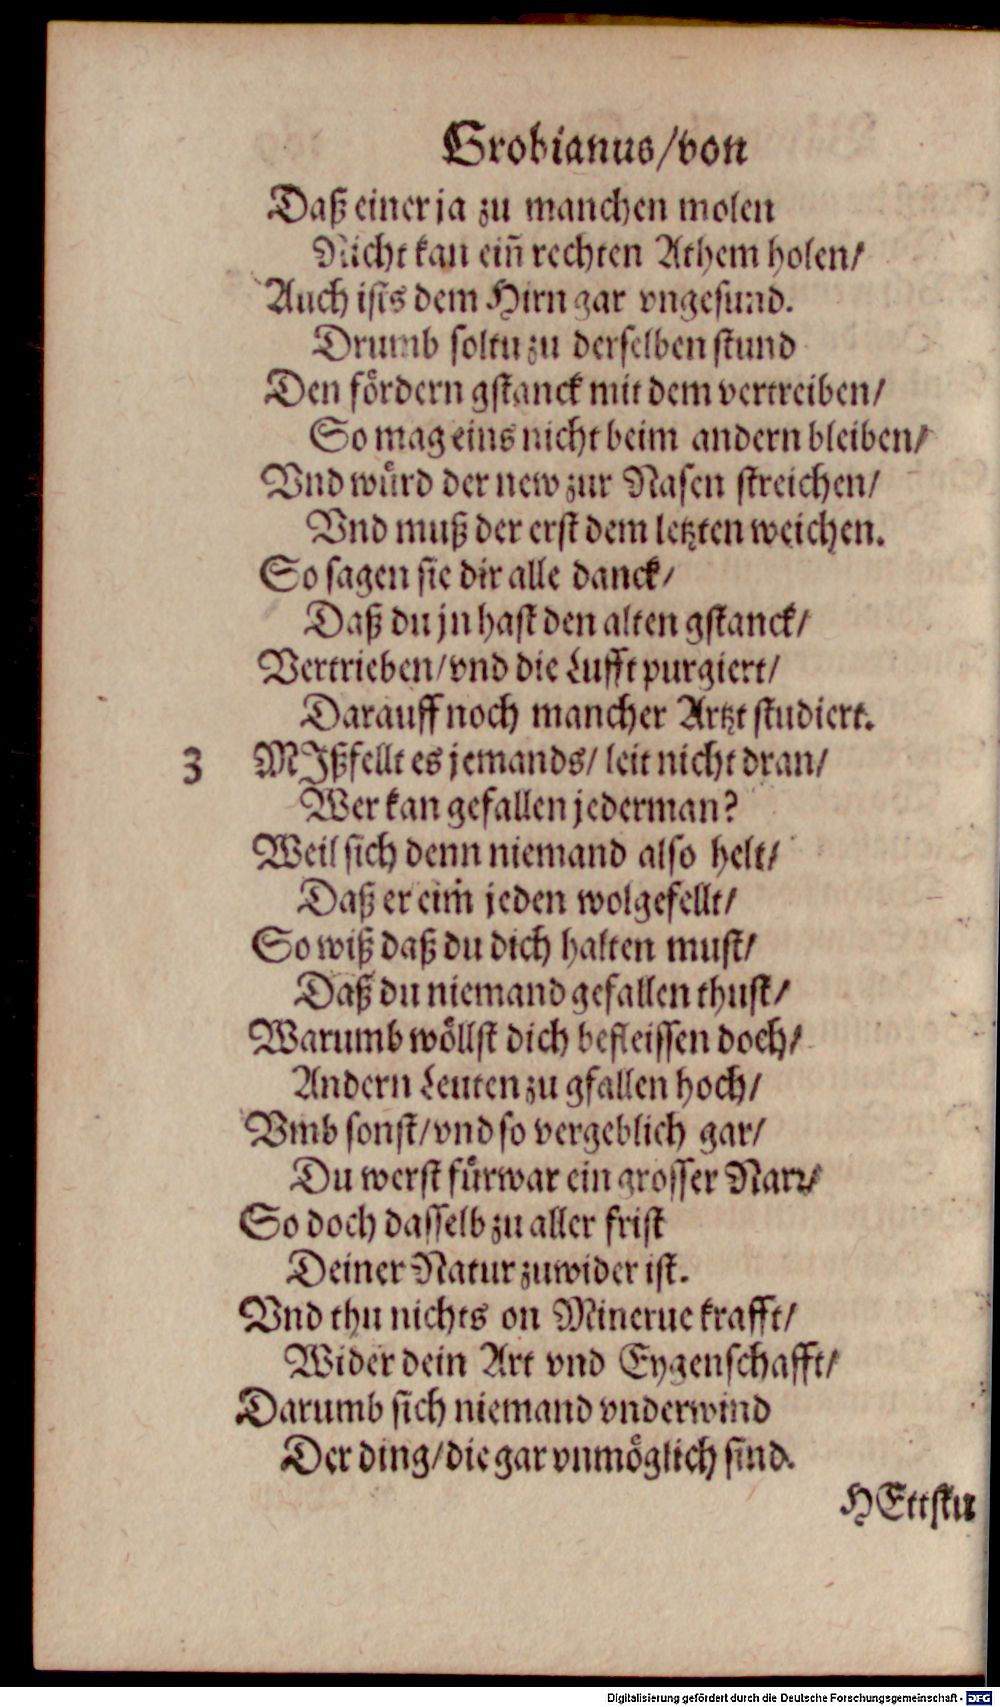 Grobianus/von
Daß einer ja zu manchen molen
Nicht kan ein̄ rechten Athem holen/
Auch ists dem Hirn gar vngesund.
Drumb soltu zu derselben stund
Den foͤrdern gstanck mit dem vertreiben/
So mag eins nicht beim andern bleiben/
Vnd wuͤrd der new zur Nasen streichen/
Vnd muß der erst dem letzten weichen.
So sagen sie dir alle danck/
Daß du jn hast den alten gstanck/
Vertrieben/vnd die Lufft purgiert/
Darauff noch mancher Artzt studiert.
3 MIßfellt es jemands/ leit nicht dran/
Wer kan gefallen jederman?
Weil sich denn niemand also helt/
Daß er eim̄ jeden wolgefellt/
So wiß daß du dich halten must/
Daß du niemand gefallen thust/
Warumb woͤllst dich befleissen doch/
Andern Leuten zu gfallen hoch/
Vmb sonst/vnd so vergeblich gar/
Du werst fuͤrwar ein grosser Narr/
So doch dasselb zu aller frist
Deiner Natur zuwider ist.
Vnd thu nichts on Minerue krafft/
Wider dein Art vnd Eygenschafft/
Darumb sich niemand vnderwind
Der ding/die gar vnmoͤglich sind.
HEttstu
Digitalisierung gefördert durch die Deutsche Forschungsgemeinschaft - DFG